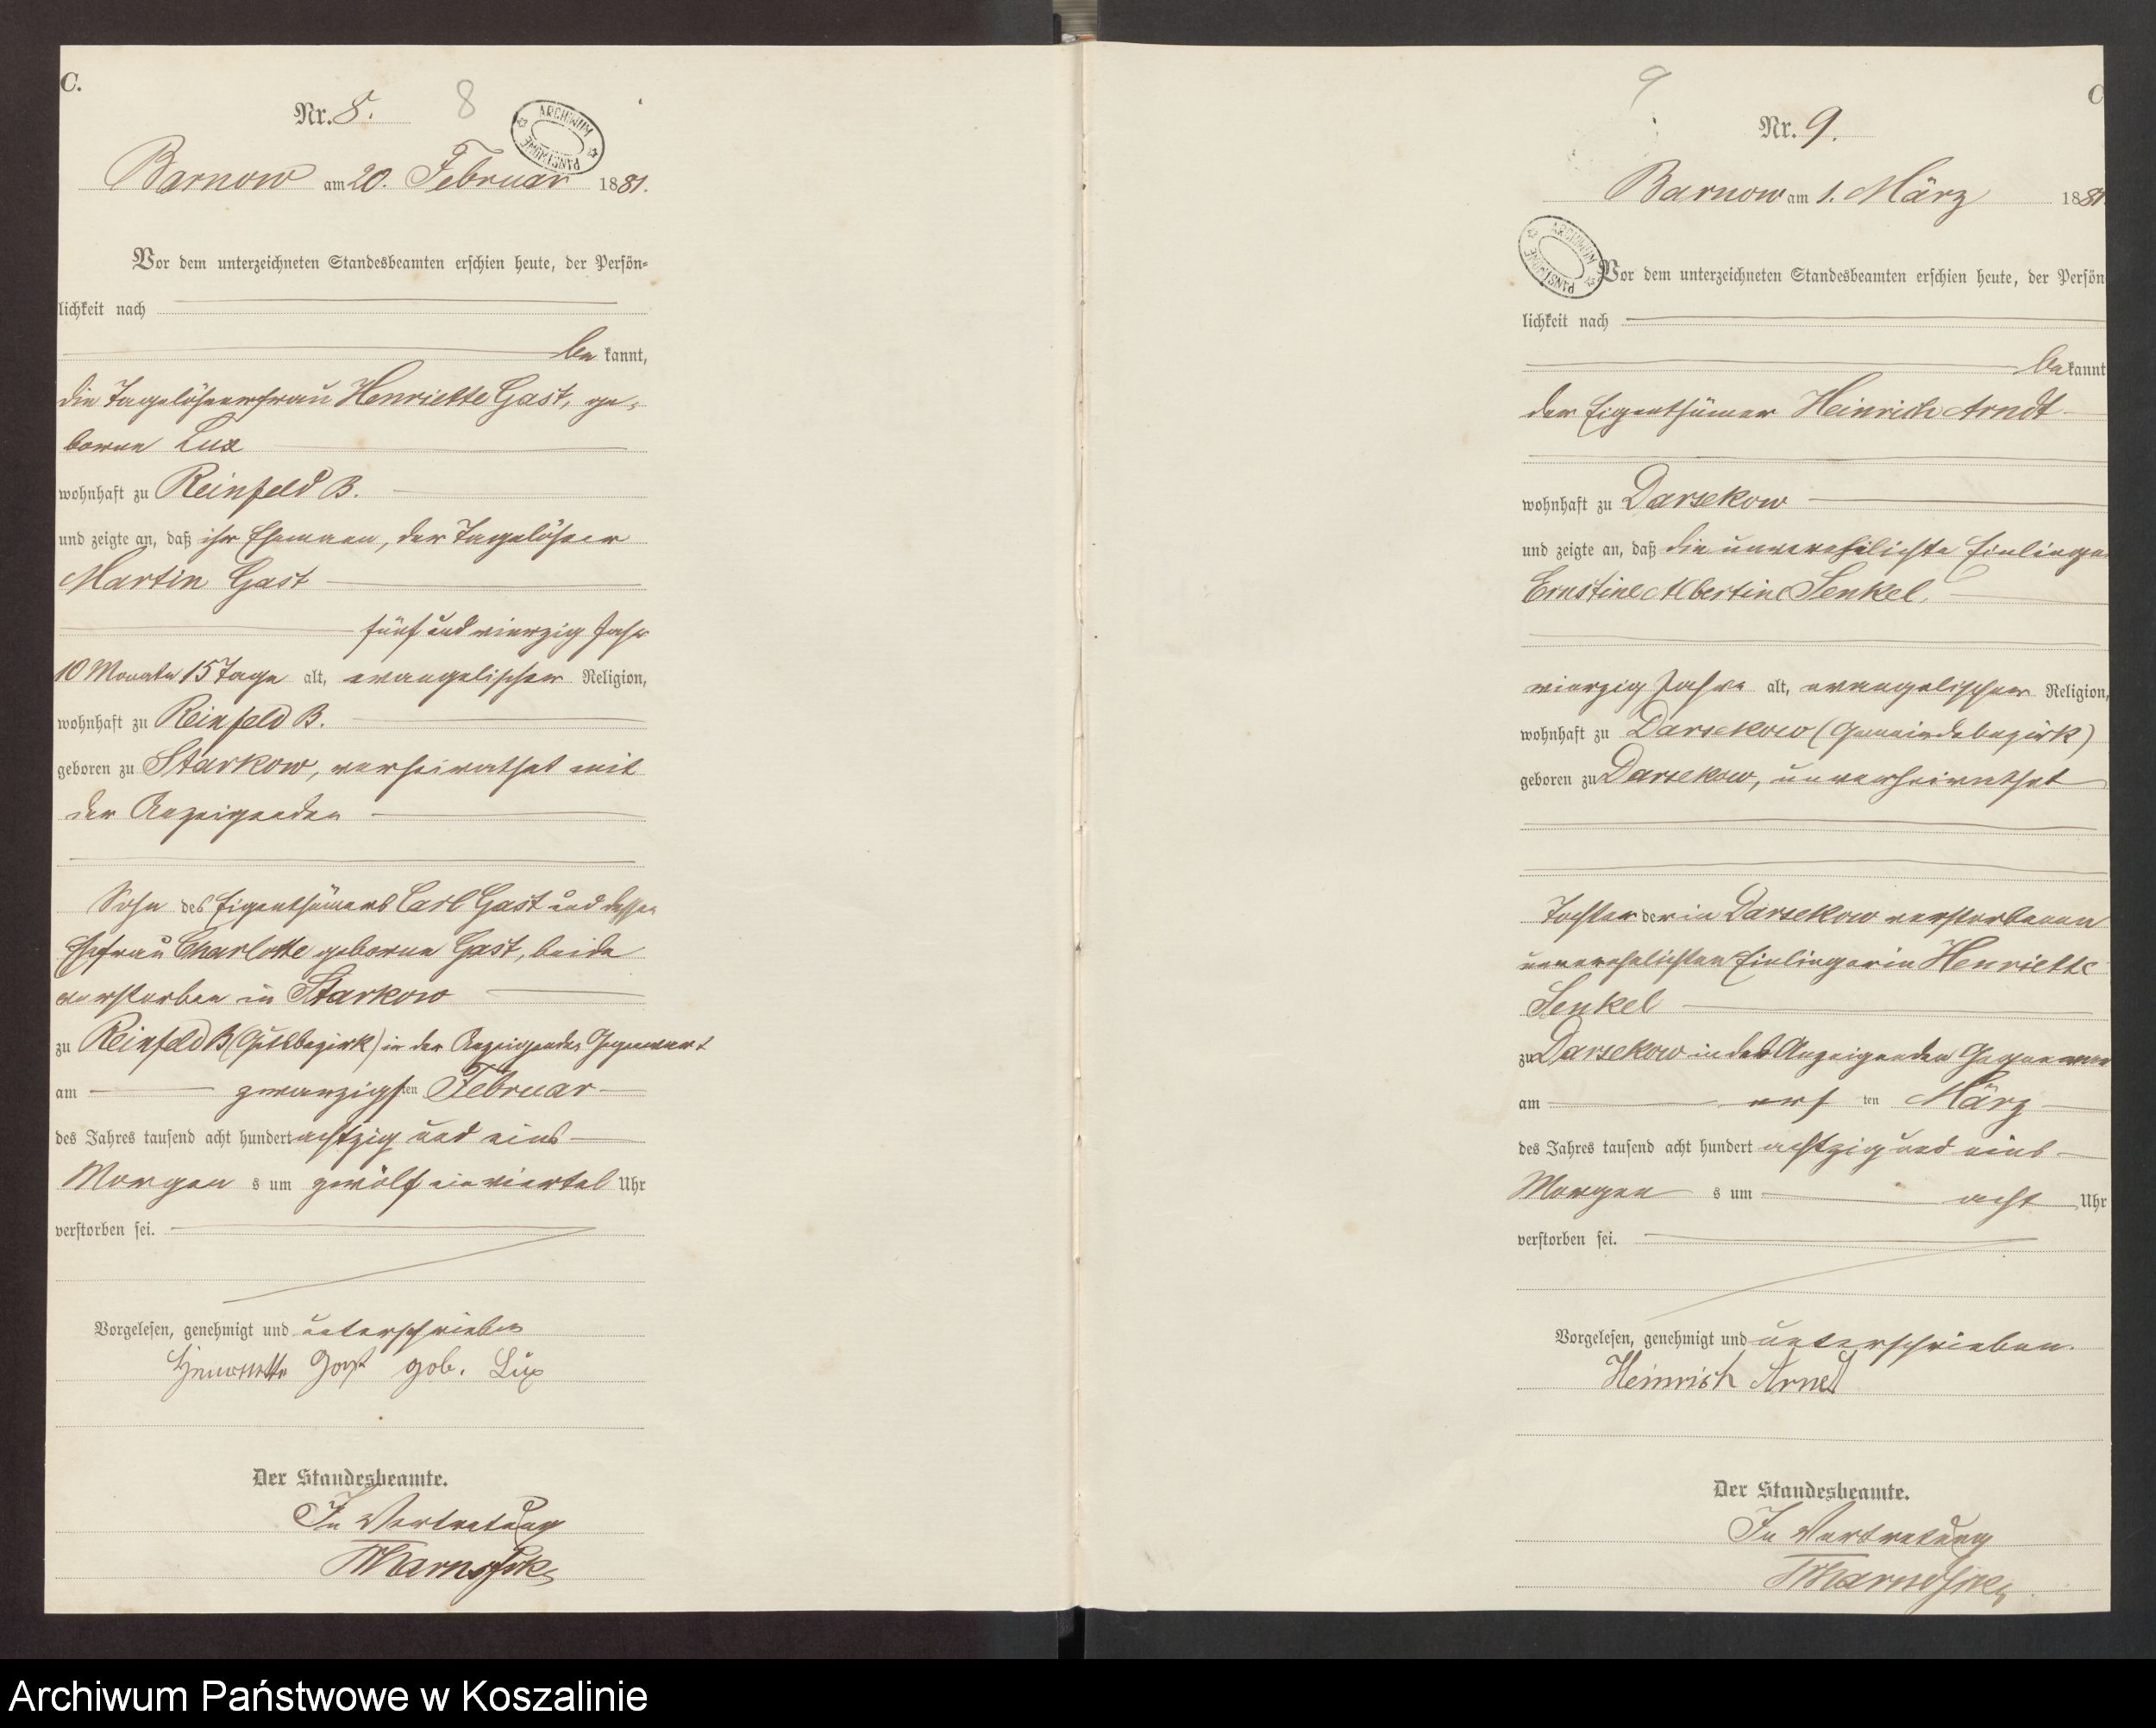 C.
Nr. 8.
8
ARCHIWUM PAŃSTWOWE
Barnow am 20. Februar 1881.
Vor dem unterzeichneten Standesbeamten erschien heute, der Persön-
lichkeit nach
bekannt,
die Tagelöhnerfrau Henriette Gast, ge-
borne Lux
wohnhaft zu Reinfeld B.
und zeigte an, daß ihr Ehemann, der Tagelöhner
Martin Gast
fünf und vierzig Jahr
10 Monate 15 Tage alt, evangelischer Religion,
wohnhaft zu Reinfeld B.
geboren zu Starkow, verheirathet mit
der Anzeigenden
Sohn des Eigenthümers Carl Gast und dessen
Ehefrau Charlotte geborne Gast, beide
verstorben in Starkow
zu Reinfeld B (Gutsbezirk) in der Anzeigenden Gegenwart
am zwanzigsten Februar
des Jahres tausend acht hundert achtzig und eins
Morgens um zwölf ein viertel Uhr
verstorben sei.
Vorgelesen, genehmigt und unterschrieben
Henriette Gast geb. Lux
Der Standesbeamte.
In Vertretung
C
9
Nr. 9.
Barnow am 1. März 1881
ARCHIWUM PAŃSTWOWE
Vor dem unterzeichneten Standesbeamten erschien heute, der Persön
lichkeit nach
bekannt
der Eigenthümer Heinrich Arndt
wohnhaft zu Darsekow
und zeigte an, daß die unverehelichte Einlieger
Ernstine Albertine Senkel,
vierzig Jahre alt, evangelischer Religion,
wohnhaft zu Darsekow (Gemeindebezirk)
geboren zu Darsekow, unverheirathet
Tochter der in Darsekow verstorbenen
unverehelichten Einliegerin Henriette
Senkel
zu Darsekow in des Anzeigenden Gegenwar
am ersten März
des Jahres tausend acht hundert achtzig und eins
Morgens um acht Uhr
verstorben sei.
Vorgelesen, genehmigt und unterschrieben.
Heinrich Arndt
Der Standesbeamte.
In Vertretung
Archiwum Państwowe w Koszalinie